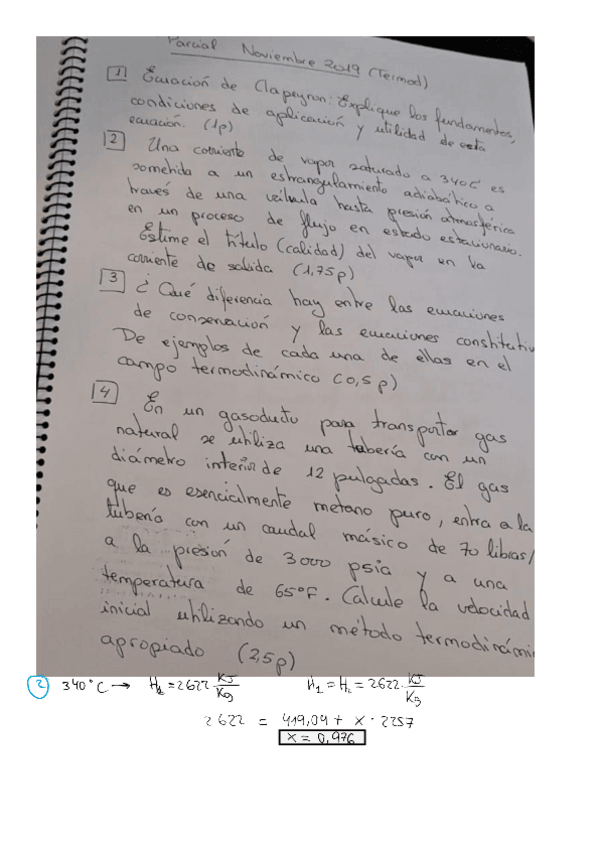 Parcial Noviembre 2019 (Termod)
1 Ecuación de Clapeyron: Explique los fundamentos,
condiciones de aplicación y utilidad de esta
ecuación. (1p)
2 Una corriente de vapor saturado a 340C es
somehida a un estrangulamiento adiabático a
través de una válvula hasta presión atmosférica
en un proceso de flujo en estado estacionario.
Estime el título (calidad) del vapor en la
corriente de salida (1,75p)
3 ¿Qué diferencia hay entre las ecuaciones
de conservación y las ecuaciones constitutiv
De ejemplos de cada una de ellas en el
campo termodinámico (0,5p)
4 En un gasoducto para transportar gas
natural se utiliza una tubería con un
diámetro interior de 12 pulgadas. El gas
que es esencialmente metano puro, entra a la
tubería con un caudal másico de 70 libras/
a la presión de 3000 psia y a una
temperatura de 65°F. Calcule la velocidad
inicial utilizando un método termodinámi
apropiado (2,5p)
2 340°C → H2 = 2622 · KJ/Kg H1 = H2 = 2622 · KJ/Kg
2622 = 419,04 + x · 2257
x = 0,976